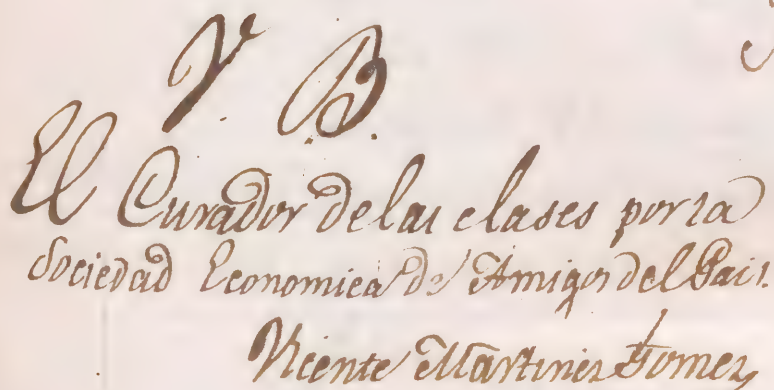 V. B.
El Curador de las clases por la
Sociedad Economica de Amigos del Pais.
Vicente Martinez Gomez